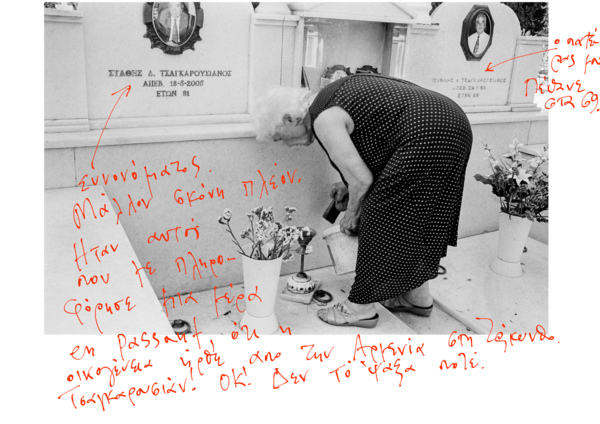 ΣΤΑΘΗΣ Δ. ΤΣΑΓΚΑΡΟΥΣΙΑΝΟΣ
ΑΠΕΒ. 18-5-2005
ΕΤΩΝ 81
ΣΤΑΘΗΣ Δ ΤΣΑΓΚΑΡΟΥΣΙΑΝΟΣ
ΕΤΩΝ 69
ο πατέ
ρας μου
Πέθανε
στα 69.
συνονόματος.
Μάλλον σκόνη πλέον.
Ήταν αυτός
που με πληρο-
φόρησε μια μέρα
en passant ότι η
οικογένεια ήρθε από την Αρμενία στη Ζάκυνθο.
Τσαγκαρουσιάν! ΟΚ! Δεν το 'ψαξα ποτέ.